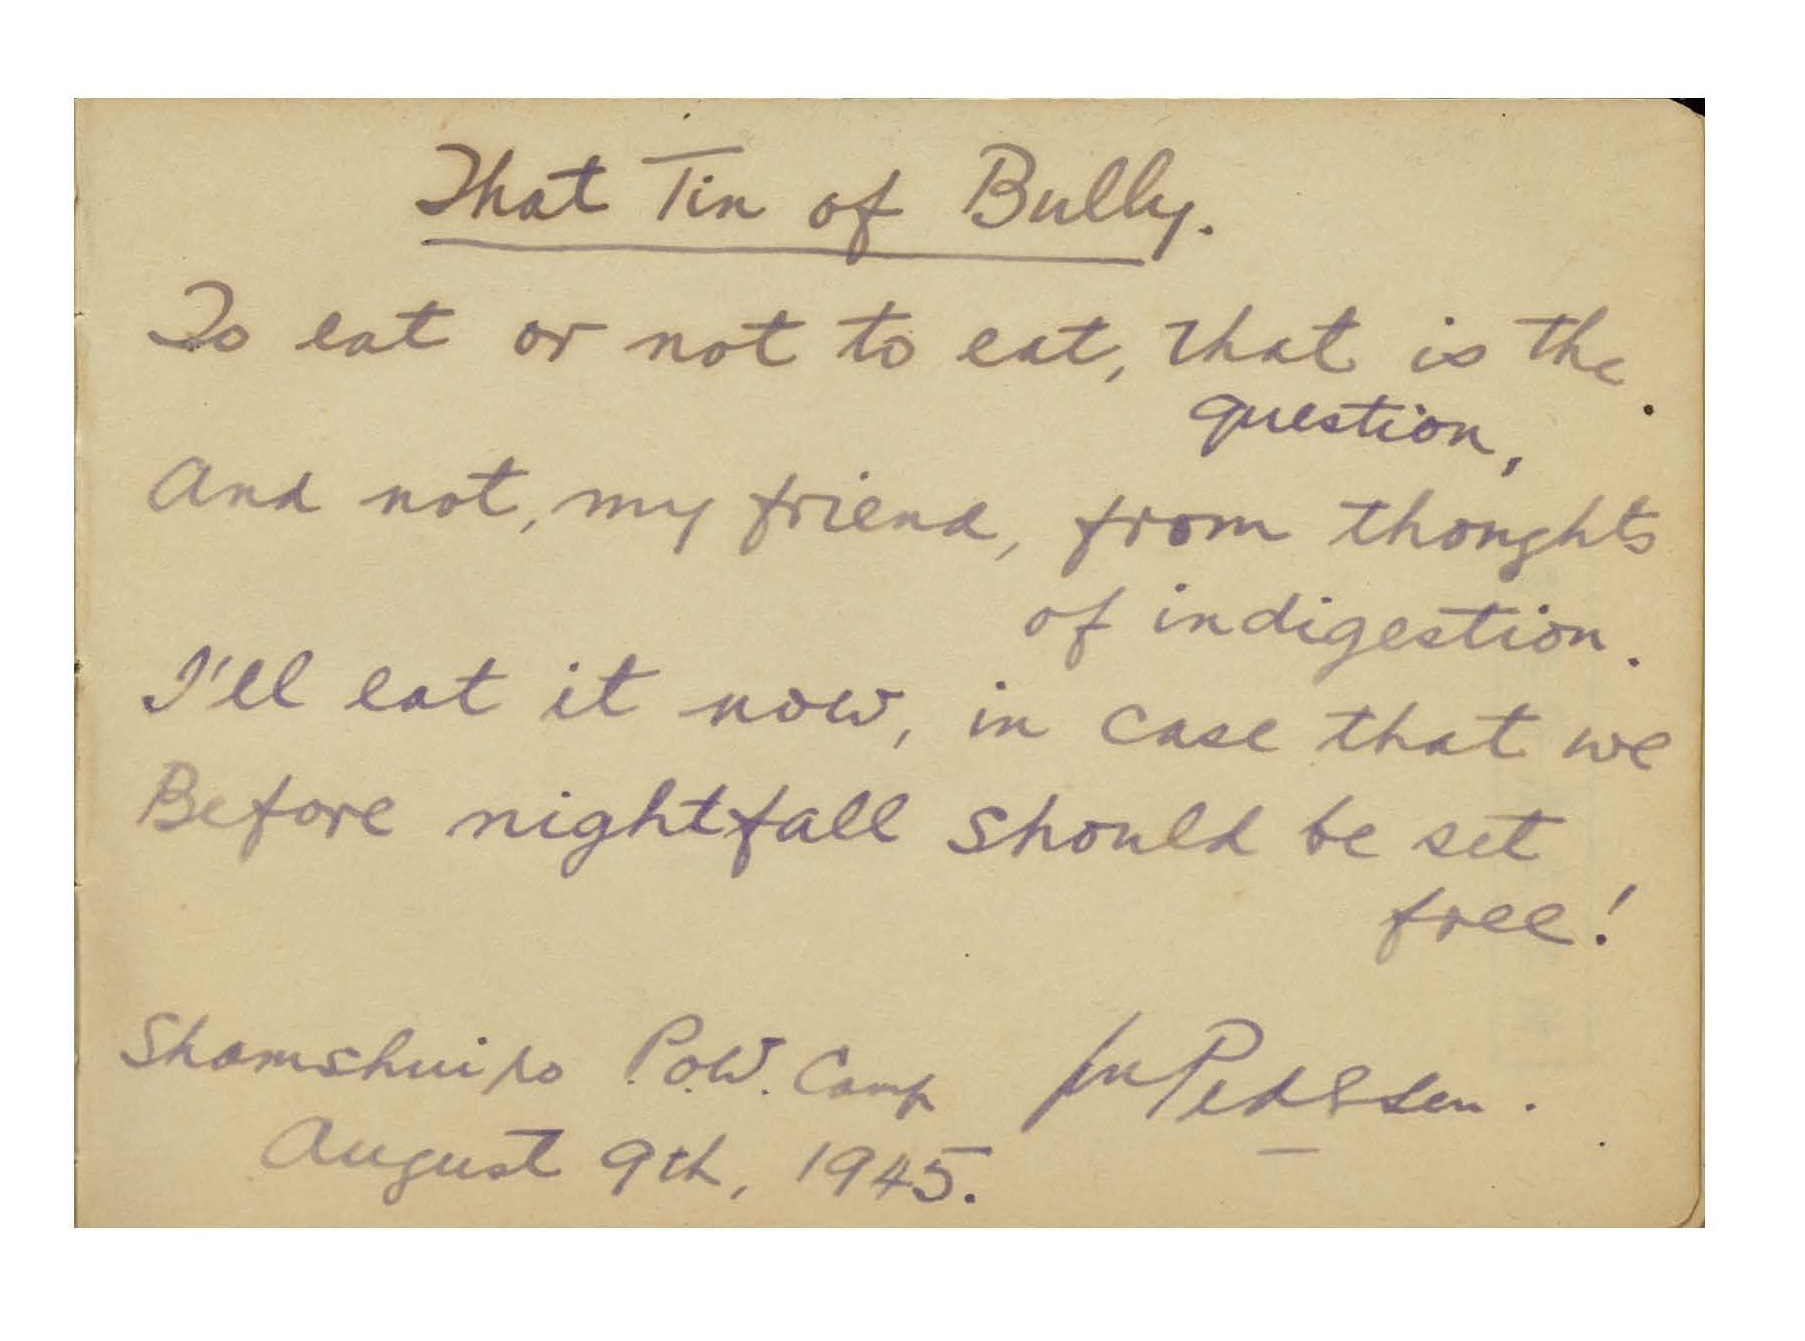 That Tin of Bully.
To eat or not to eat, that is the
question,
And not, my friend, from thoughts
of indigestion.
I'll eat it now, in case that we
Before nightfall should be set
free!
Shamshuipo P.O.W. Camp
Pedersen.
August 9th, 1945.